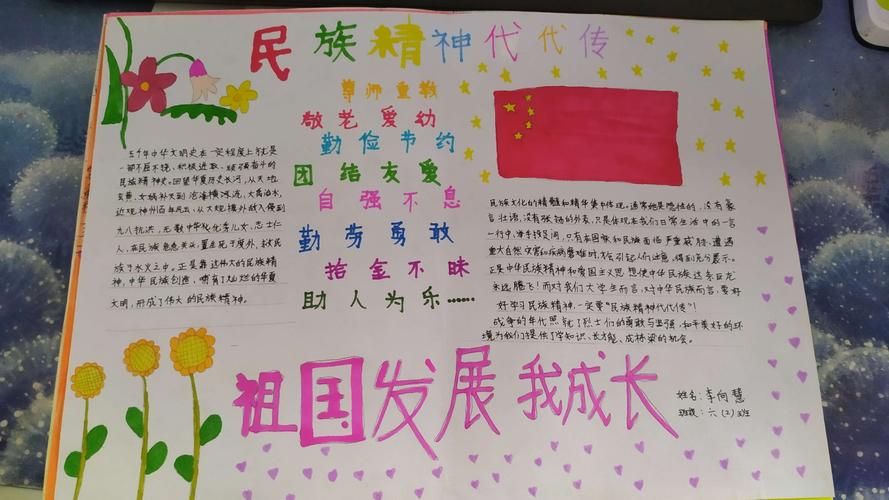 民族精神代代传
尊师重教
敬老爱幼
勤俭节约
团结友爱
自强不息
勤劳勇敢
拾金不昧
助人为乐……
五千年中华文明史在一定程度上就是
一部不屈不挠、积极进取、顽强奋斗的
民族精神史。回望华夏历史长河,从天地
玄黄、女娲补天到沧海横流、大禹治水,
近观神州百年风云,从大规模外敌入侵到
九八抗洪,无数中华优秀儿女、志士仁
人,在民族危急关头,置生死于度外,救民
族于水火之中。正是靠这伟大的民族精
神,中华民族创造,哺育了灿烂的华夏
文明,形成了伟大的民族精神。
民族文化的精髓和精华集中体现。通常她是隐性的,没有豪
言壮语,没有张扬的外表,只是体现在我们日常生活中的一言
一行中,举手投足间,只有在国家和民族面临严重威胁、遭遇
重大自然灾害和疾病磨难时,才会引起人们注意,得到充分展示。
正是中华民族精神和爱国主义思想使中华民族这条巨龙
永远腾飞!而对我们大学生而言,对中华民族而言,要好
好学习民族精神,一定要“民族精神代代传”!
战争的年代照就了烈士们的勇敢与坚强,和平美好的环
境为我们提供了学知识、长才能、成栋梁的机会。
祖国发展我成长
姓名:李向慧
班级:六(2)班